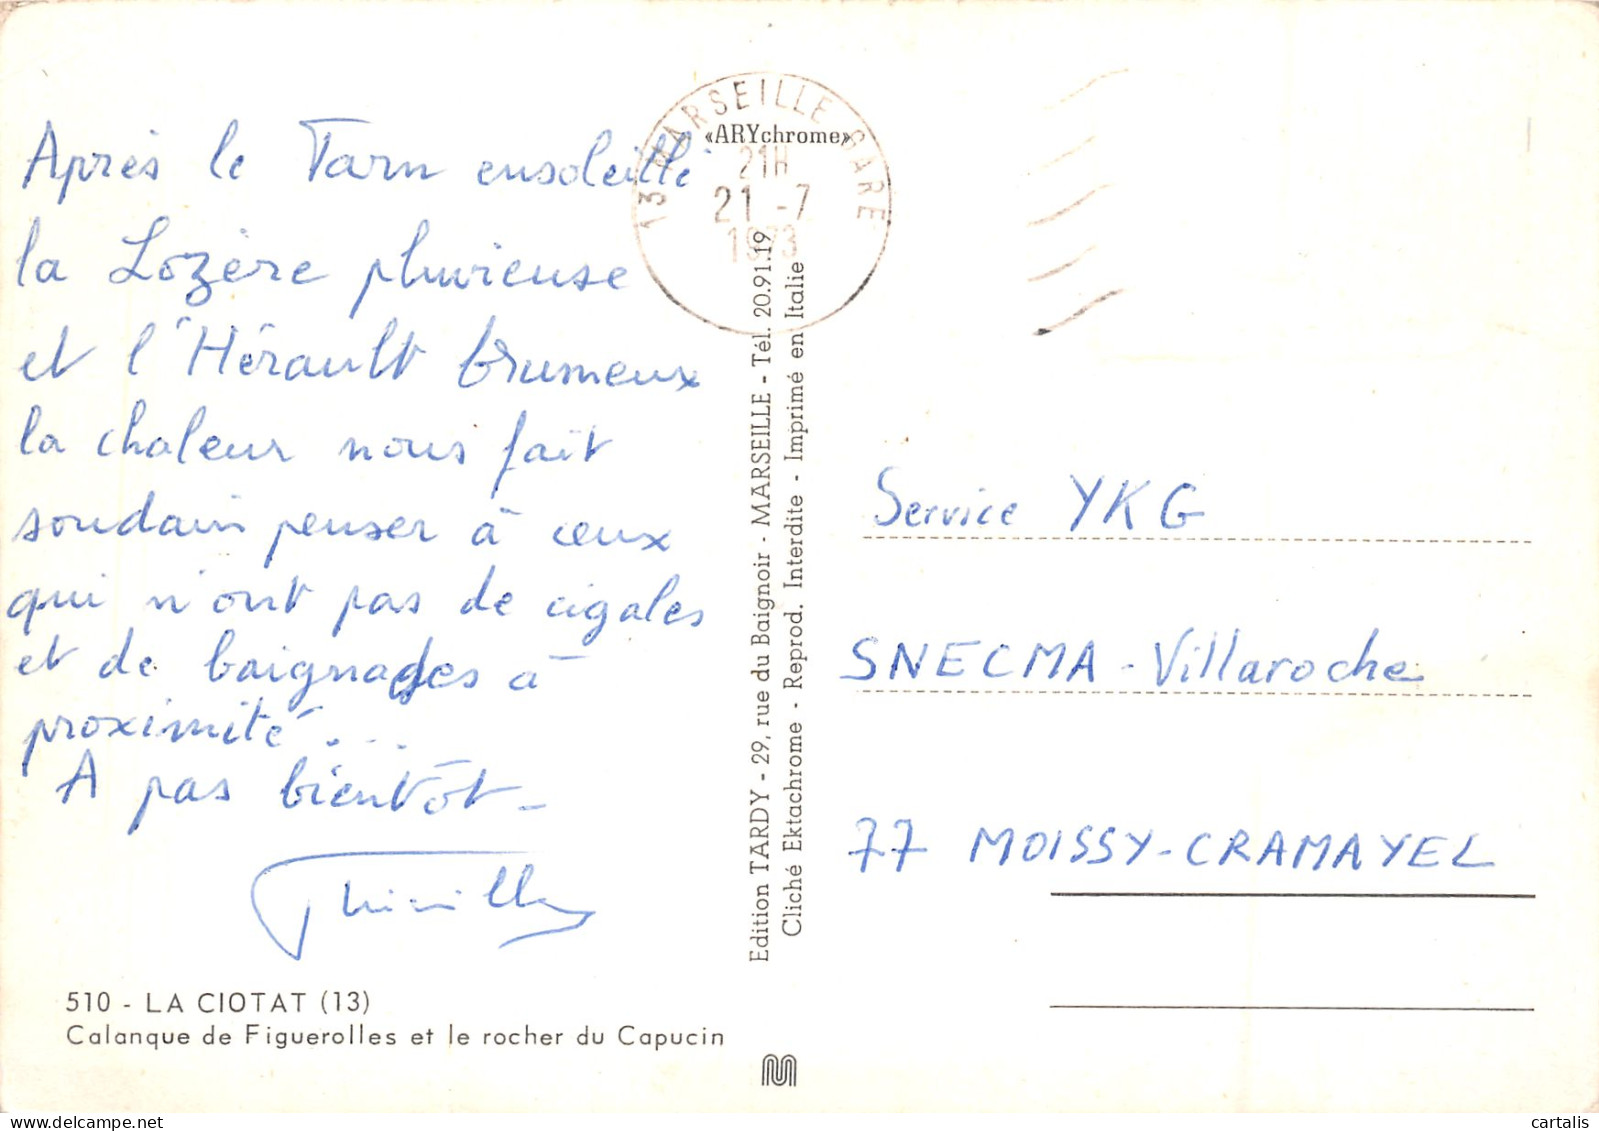 Après le Tarn ensoleillé
la Lozère pluvieuse
et l'Hérault brumeux
la chaleur nous fait
soudain penser à ceux
qui n'ont pas de cigales
et de baignades à
proximité...
A pas bientôt -
510 - LA CIOTAT (13)
Calanque de Figuerolles et le rocher du Capucin
13 MARSEILLE GARE
21H
21 -7
1973
«ARYchrome»
Edition TARDY - 29, rue du Baignoir - MARSEILLE - Tél. 20.91.19
Cliché Ektachrome - Reprod. Interdite - Imprimé en Italie
Service YKG
SNECMA - Villaroche
77 MOISSY-CRAMAYEL
cartalis